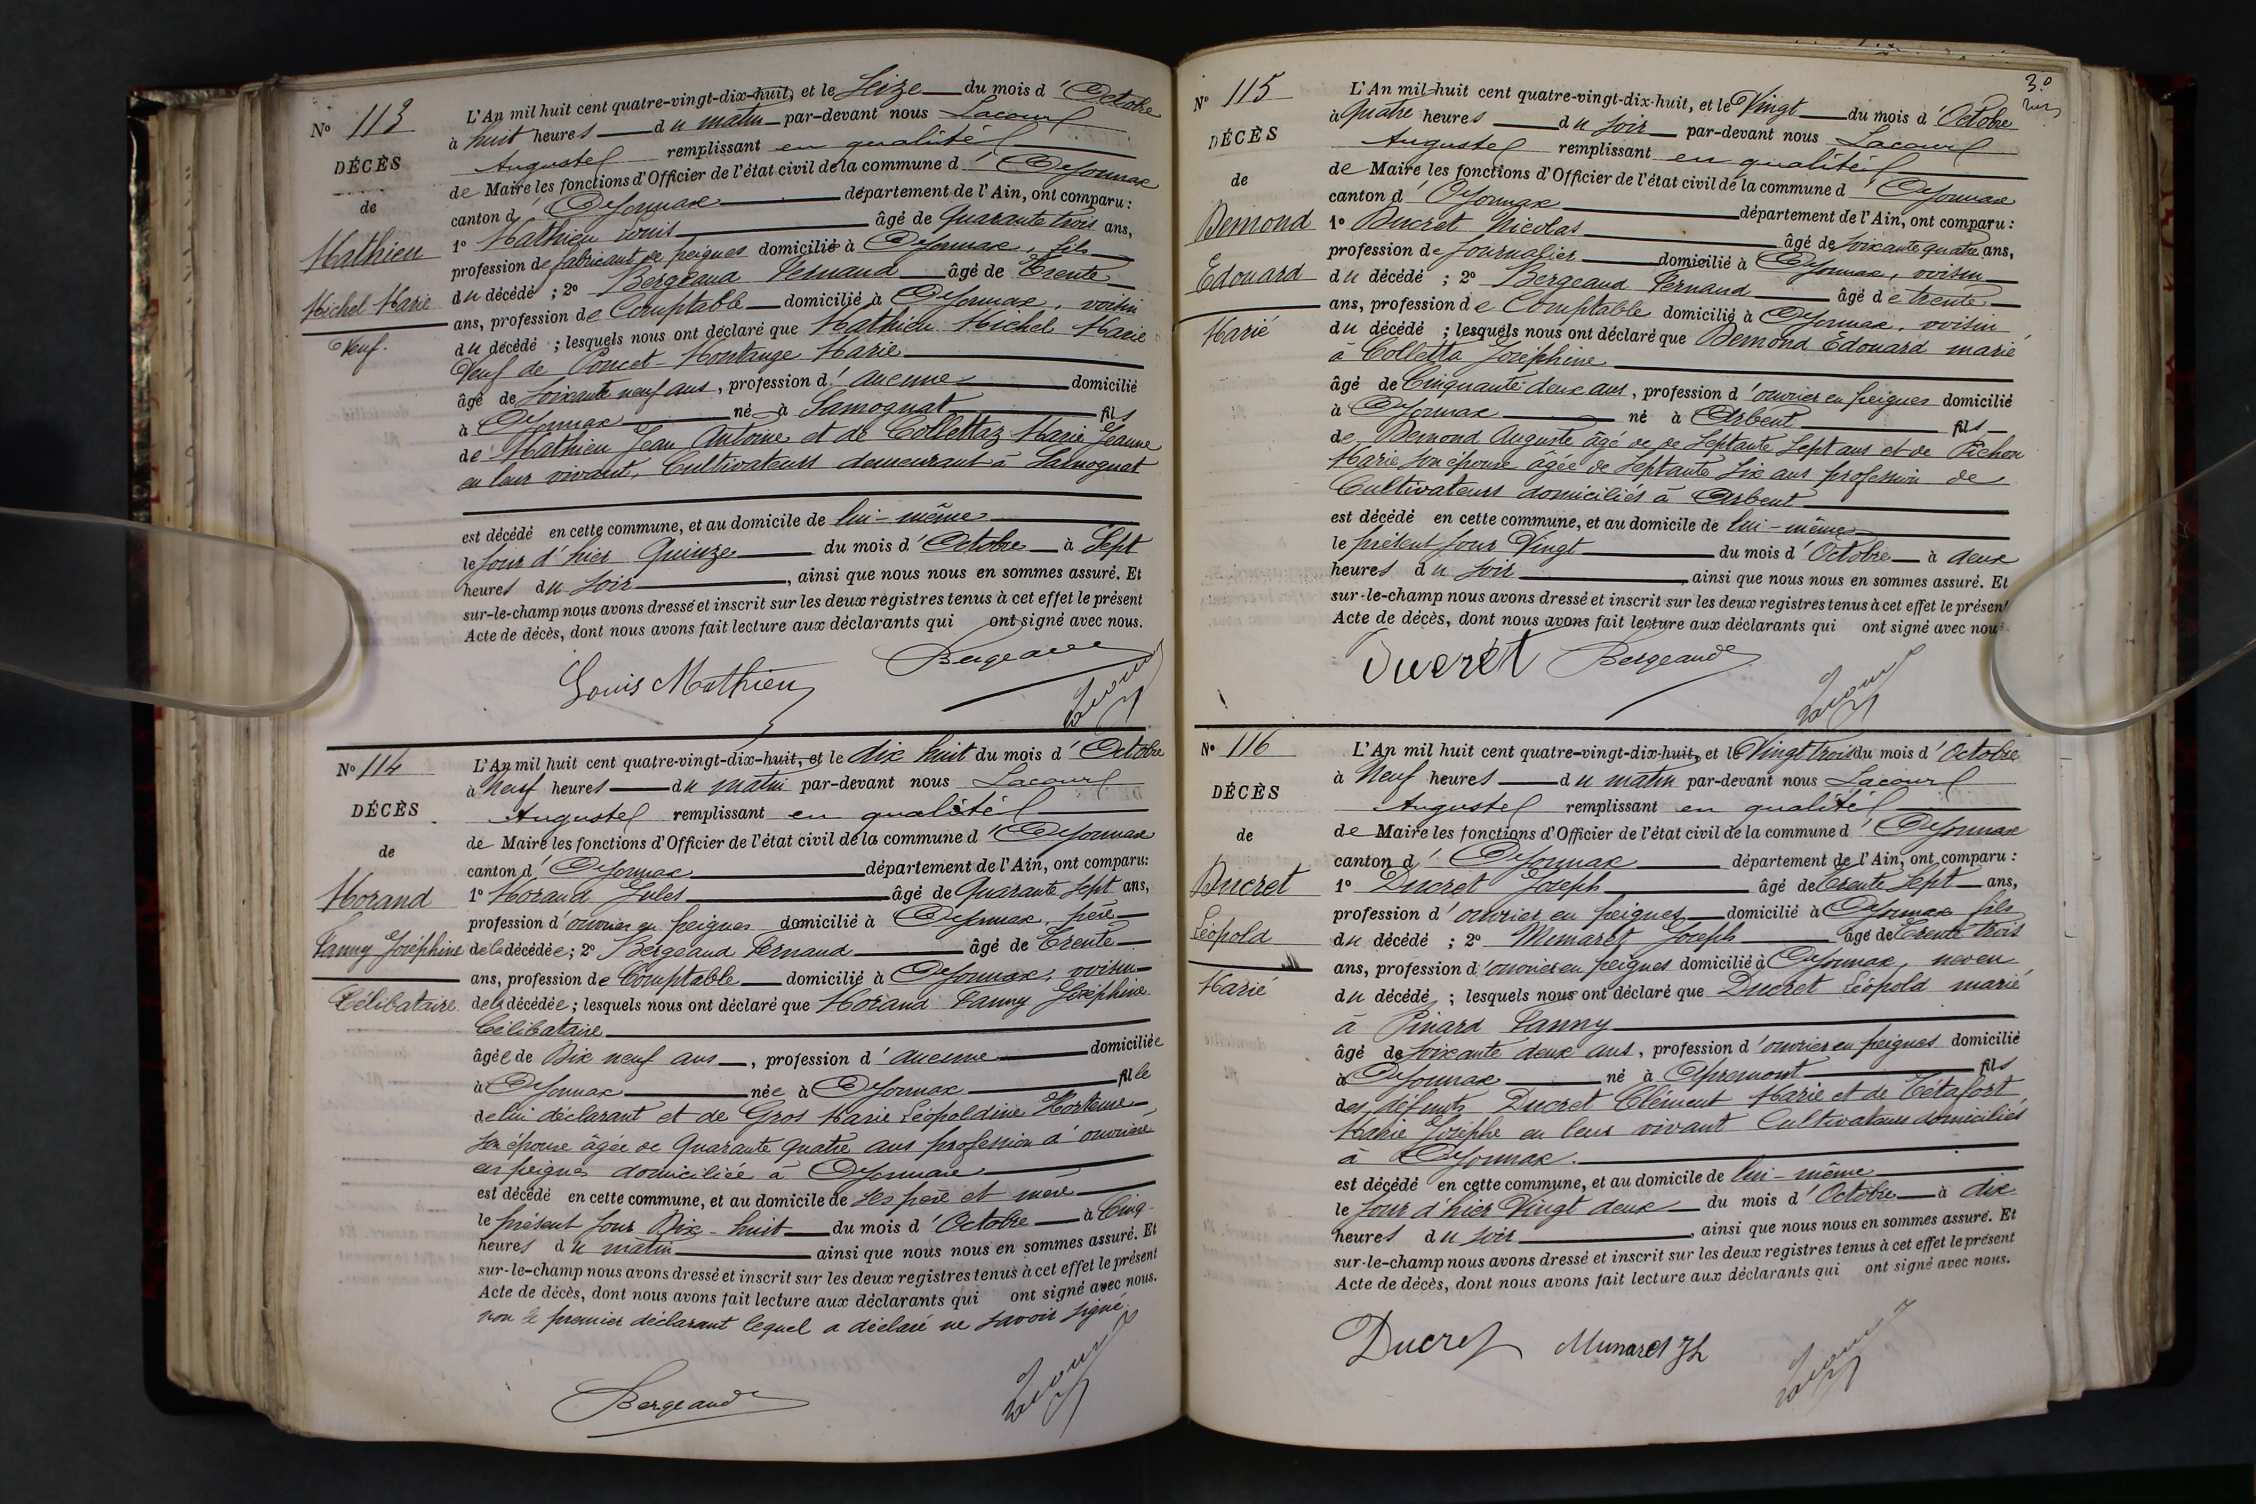 N° 113
DÉCÈS
de
Mathieu
Michel Marie
Veuf.
L'An mil huit cent quatre-vingt-dix-huit, et le Seize du mois d'Octobre
à huit heures du matin par-devant nous Lacour
Auguste remplissant en qualité
de Maire les fonctions d'Officier de l'état civil de la commune d'Oyonnax
canton d'Oyonnax département de l'Ain, ont comparu :
1° Mathieu Louis âgé de Quarante trois ans,
profession de fabricant de peignes domicilié à Oyonnax, fils
du décédé ; 2° Bergeaud Fernand âgé de Trente
ans, profession de Comptable domicilié à Oyonnax, voisin
du décédé ; lesquels nous ont déclaré que Mathieu Michel Marie
Veuf de Poncet-Montange Marie
âgé de Soixante neuf ans, profession d'aucune domicilié
à Oyonnax né à Samognat fils
de Mathieu Jean Antoine et de Collettaz Marie Jeanne
en leur vivant, Cultivateurs demeurant à Samognat
est décédé en cette commune, et au domicile de lui-même
le jour d'hier Quinze du mois d'Octobre à Sept
heures du soir, ainsi que nous nous en sommes assuré. Et
sur-le-champ nous avons dressé et inscrit sur les deux registres tenus à cet effet le présent
Acte de décès, dont nous avons fait lecture aux déclarants qui ont signé avec nous.
Louis Mathieu Bergeaud Lacour
N° 114
DÉCÈS
de
Morand
Fanny Joséphine
Célibataire
L'An mil huit cent quatre-vingt-dix-huit, et le dix huit du mois d'Octobre
à Neuf heures du matin par-devant nous Lacour
Auguste remplissant en qualité
de Maire les fonctions d'Officier de l'état civil de la commune d'Oyonnax
canton d'Oyonnax département de l'Ain, ont comparu :
1° Morand Jules âgé de Quarante Sept ans,
profession d'ouvrier en peignes domicilié à Oyonnax, père
de la décédée ; 2° Bergeaud Fernand âgé de Trente
ans, profession de Comptable domicilié à Oyonnax, voisin
de la décédée ; lesquels nous ont déclaré que Morand Fanny Joséphine
Célibataire
âgée de Dix neuf ans, profession d'aucune domiciliée
à Oyonnax née à Oyonnax fille
de lui déclarant et de Gros Marie Léopoldine Hortense
son épouse âgée de Quarante quatre ans profession d'ouvrière
en peignes domiciliée à Oyonnax
est décédé en cette commune, et au domicile de ses père et mère
le présent jour Dix-huit du mois d'Octobre à Cinq
heures du matin ainsi que nous nous en sommes assuré. Et
sur-le-champ nous avons dressé et inscrit sur les deux registres tenus à cet effet le présent
Acte de décès, dont nous avons fait lecture aux déclarants qui ont signé avec nous.
non le premier déclarant lequel a déclaré ne savoir signé.
Bergeaud Lacour
N° 115
DÉCÈS
de
Demond
Edouard
Marié
L'An mil huit cent quatre-vingt-dix-huit, et le Vingt du mois d'Octobre
à Quatre heures du soir par-devant nous Lacour
Auguste remplissant en qualité
de Maire les fonctions d'Officier de l'état civil de la commune d'Oyonnax
canton d'Oyonnax département de l'Ain, ont comparu :
1° Ducret Nicolas âgé de soixante quatre ans,
profession de journalier domicilié à Oyonnax, voisin
du décédé ; 2° Bergeaud Fernand âgé de trente
ans, profession de Comptable domicilié à Oyonnax, voisin
du décédé ; lesquels nous ont déclaré que Demond Edouard marié
à Colletta Joséphine
âgé de Cinquante deux ans, profession d'ouvrier en peignes domicilié
à Oyonnax né à Arbent fils
de Demond Auguste âgé de de Septante Sept ans et de Pichon
Marie son épouse âgée de Septante Six ans profession de
Cultivateurs domiciliés à Arbent
est décédé en cette commune, et au domicile de lui-même
le présent jour Vingt du mois d'Octobre à deux
heures du soir, ainsi que nous nous en sommes assuré. Et
sur-le-champ nous avons dressé et inscrit sur les deux registres tenus à cet effet le présent
Acte de décès, dont nous avons fait lecture aux déclarants qui ont signé avec nous.
Ducret Bergeaud Lacour
N° 116
DÉCÈS
de
Ducret
Léopold
Marié
L'An mil huit cent quatre-vingt-dix-huit, et le Vingt trois du mois d'Octobre
à Neuf heures du matin par-devant nous Lacour
Auguste remplissant en qualité
de Maire les fonctions d'Officier de l'état civil de la commune d'Oyonnax
canton d'Oyonnax département de l'Ain, ont comparu :
1° Ducret Joseph âgé de Trente Sept ans,
profession d'ouvrier en peignes domicilié à Oyonnax fils
du décédé ; 2° Munaret Joseph âgé de Trente trois
ans, profession d'ouvrier en peignes domicilié à Oyonnax, neveu
du décédé ; lesquels nous ont déclaré que Ducret Léopold marié
à Pinard Fanny
âgé de Soixante deux ans, profession d'ouvrier en peignes domicilié
à Oyonnax né à Apremont fils
des défunts Ducret Clément Marie et de Tétafort
Marie Josephe en leur vivant Cultivateurs domiciliés
à Oyonnax.
est décédé en cette commune, et au domicile de lui-même
le jour d'hier Vingt deux du mois d'Octobre à dix
heures du soir, ainsi que nous nous en sommes assuré. Et
sur-le-champ nous avons dressé et inscrit sur les deux registres tenus à cet effet le présent
Acte de décès, dont nous avons fait lecture aux déclarants qui ont signé avec nous.
Ducret Munaret Jh Lacour